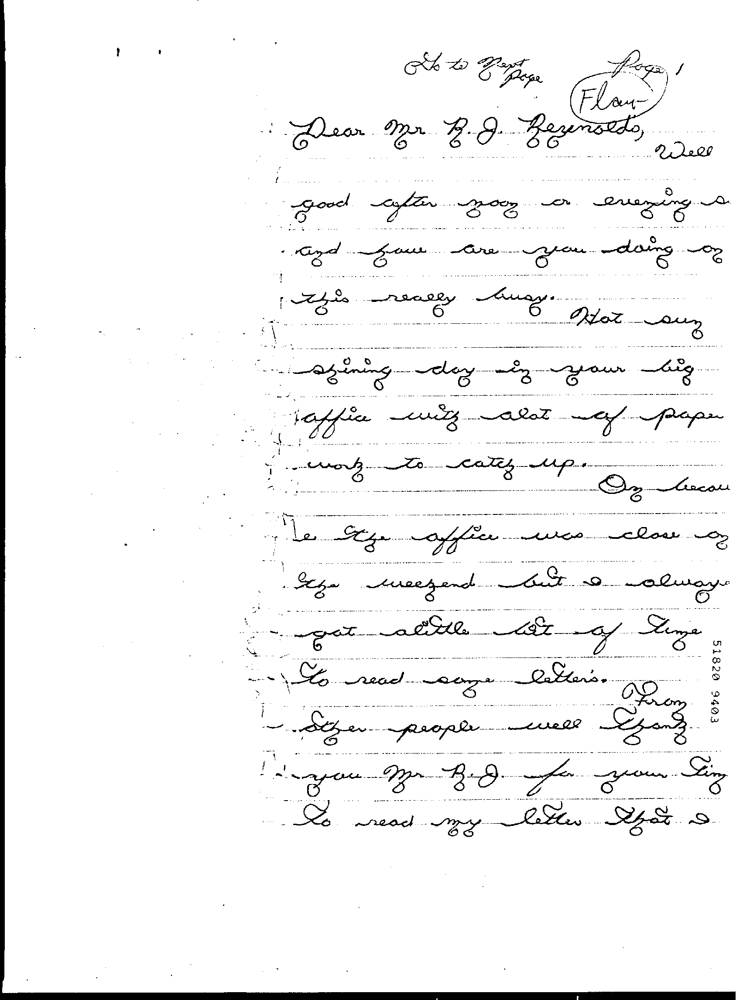 Go to Next Page
Page 1
Flau-
Dear Mr R. J. Reyenolds,
Well
good after noon or evening s
and how are you doing on
this really busy.
Hot sun
shining day in your big
office with alot of paper
work to catch up.
On becau
e the office was close on
the weekend but I always
got alittle bit of time
to read some letter's.
From
other people well thank
you Mr R.J. for your tim
to read my letter that I
51820 9403